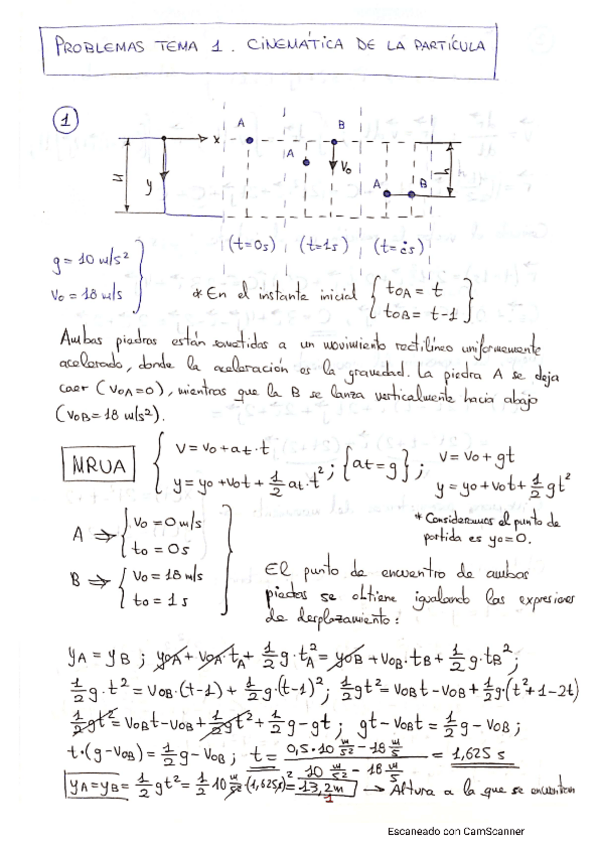 PROBLEMAS TEMA 1. CINEMÁTICA DE LA PARTÍCULA
1
A B
x A V₀ A B
H y h
(t=0s) (t=1s) (t=¿s)
g = 10 m/s²
V₀ = 18 m/s
* En el instante inicial { t₀A = t
t₀B = t-1 }
Ambas piedras están sometidas a un movimiento rectilíneo uniformemente
acelerado, donde la aceleración es la gravedad. La piedra A se deja
caer (V₀A=0), mientras que la B se lanza verticalmente hacia abajo
(V₀B=18 m/s²).
MRUA { V = V₀ + at·t
y = y₀ + V₀t + 1/2 at·t² ; {at=g} ; V = V₀ + gt
y = y₀ + V₀t + 1/2 gt²
* Consideramos el punto de
partida es y₀=0.
A ⇒ { V₀ = 0 m/s
t₀ = 0 s
B ⇒ { V₀ = 18 m/s
t₀ = 1 s
El punto de encuentro de ambas
piedras se obtiene igualando las expresiones
de desplazamiento:
yA = yB ; y₀A + V₀A·tA + 1/2 g·tA² = y₀B + V₀B·tB + 1/2 g·tB² ;
1/2 g·t² = V₀B·(t-1) + 1/2 g·(t-1)² ; 1/2 gt² = V₀Bt - V₀B + 1/2 g·(t²+1-2t)
1/2 gt² = V₀Bt - V₀B + 1/2 gt² + 1/2 g - gt ; gt - V₀Bt = 1/2 g - V₀B ;
t·(g-V₀B) = 1/2 g - V₀B ; t = (0,5·10 m/s² - 18 m/s) / (10 m/s² - 18 m/s) = 1,625 s
yA = yB = 1/2 gt² = 1/2 10 m/s² (1,625s)² = 13,2m → Altura a la que se encuentran
1
Escaneado con CamScanner